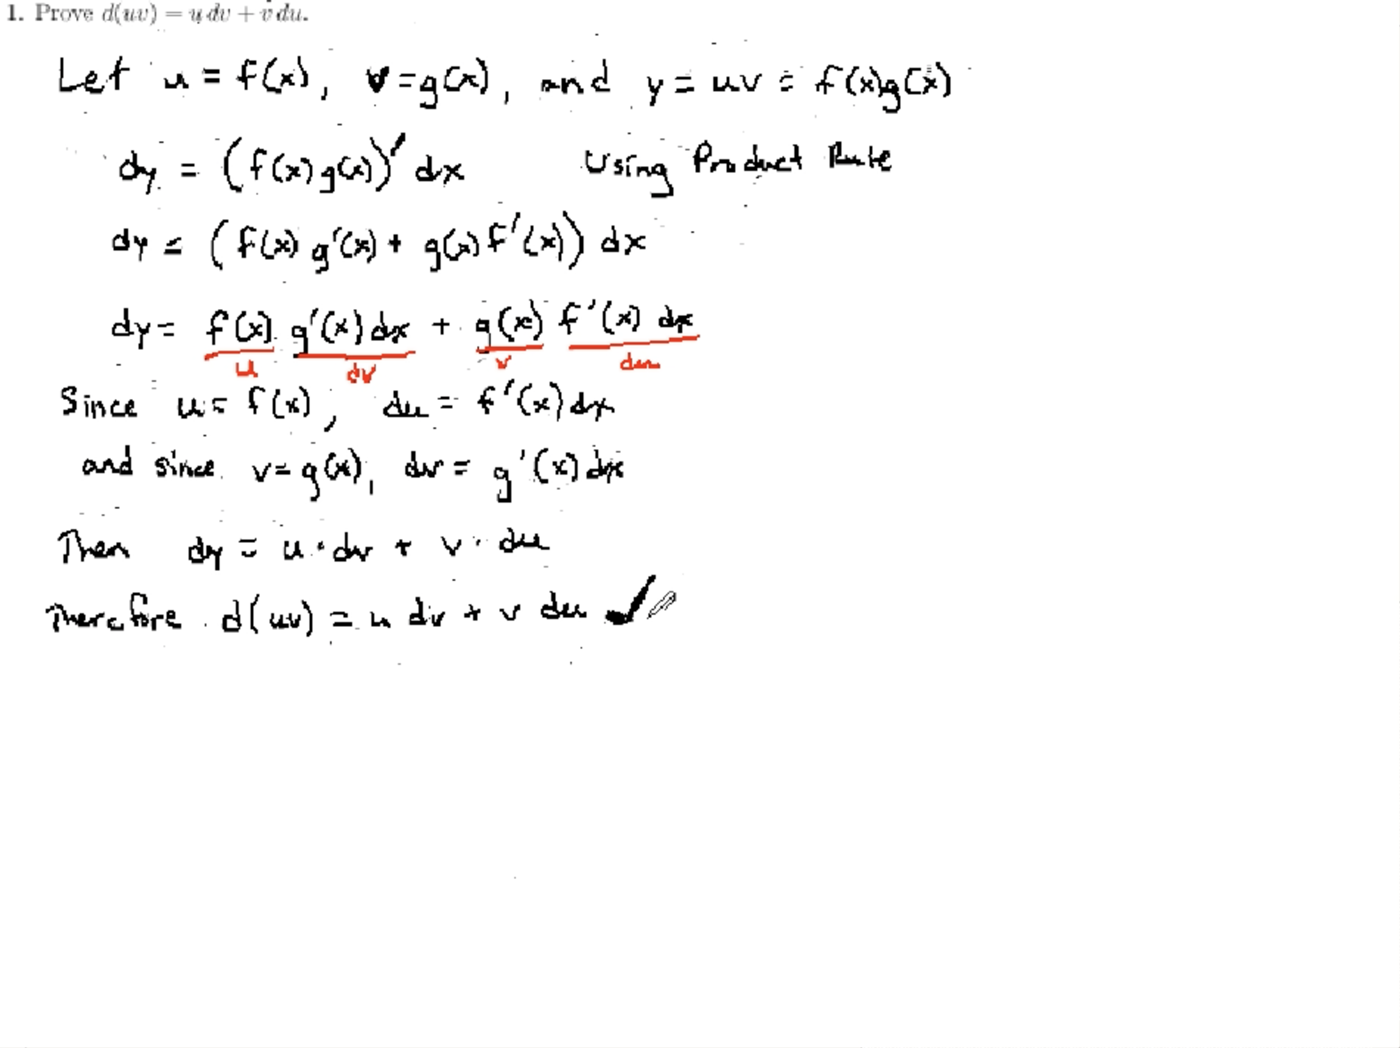 1. Prove d(uv) = u dv + v du.
Let u = f(x), v = g(x), and y = uv = f(x)g(x)
dy = (f(x)g(x))' dx Using Product Rule
dy = (f(x) g'(x) + g(x) f'(x)) dx
dy = f(x) g'(x) dx + g(x) f'(x) dx
u dv v du
Since u = f(x), du = f'(x) dx
and since v = g(x), dv = g'(x) dx
Then dy = u · dv + v · du
Therefore d(uv) = u dv + v du ✓